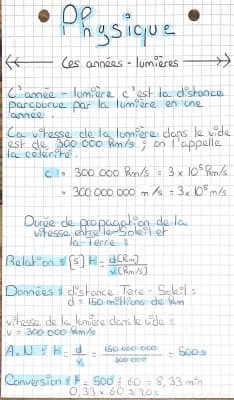 Physique
Les années-lumières
L'année-lumière c'est la distance
parcourue par la lumière en une
année.
La vitesse de la lumière dans le vide
est de 300 000 Km/s ; on l'appelle
la célérité.
C = 300 000 Km/s = 3 x 10⁵ Km/s
= 300 000 000 m/s = 3 x 10⁸ m/s
Durée de propagation de la
vitesse entre le Soleil et
la Terre :
Relation : [s] t = d [Km]
v [Km/s]
Données : distance Terre - Soleil :
d = 150 millions de Km
vitesse de la lumière dans le vide :
v = 300 000 Km/s
A.N : t = d/v = 150 000 000 / 300 000 = 500 s
Conversion : t = 500 ÷ 60 = 8,33 min
0,33 x 60 = 20 s